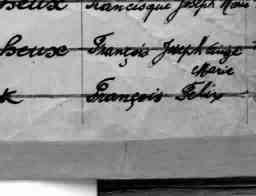 heux Francisque Joseph Marie
heux François Joseph Ange
Marie
k François Felix